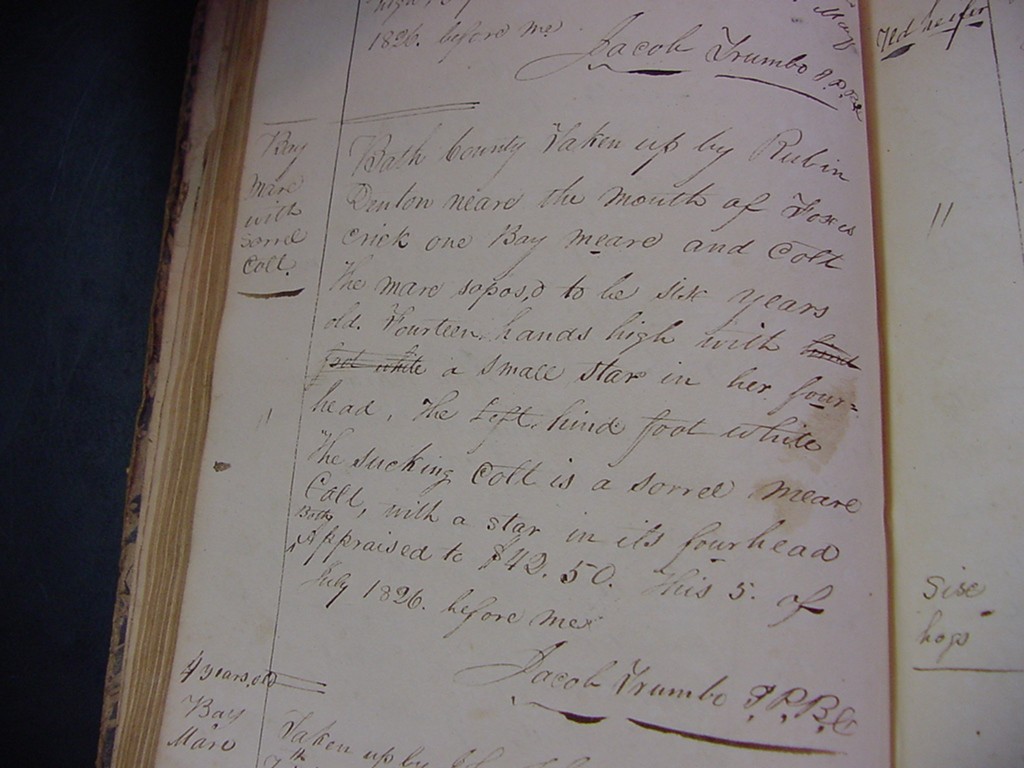 1826. before me
Jacob Trumbo J.P.B.C
Red heifer
Bay
mare
with
sorrel
Colt.
Bath County Taken up by Rubin
Denton neare the mouth of Foxes
crick one Bay meare and Colt
The mare sopos,d to be sisx years
old. Fourteen hands high with hind
foot white a small star in her four=
head, The Left hind foot white
The sucking Colt is a sorrel meare
Colt, with a star in its fourhead
Both
Appraised to $42.50. This 5. of
July 1826. before me
Jacob Trumbo J.P.B.C
4 years, old
Bay
Mare
Taken up by
"
"
Sixe
hogs